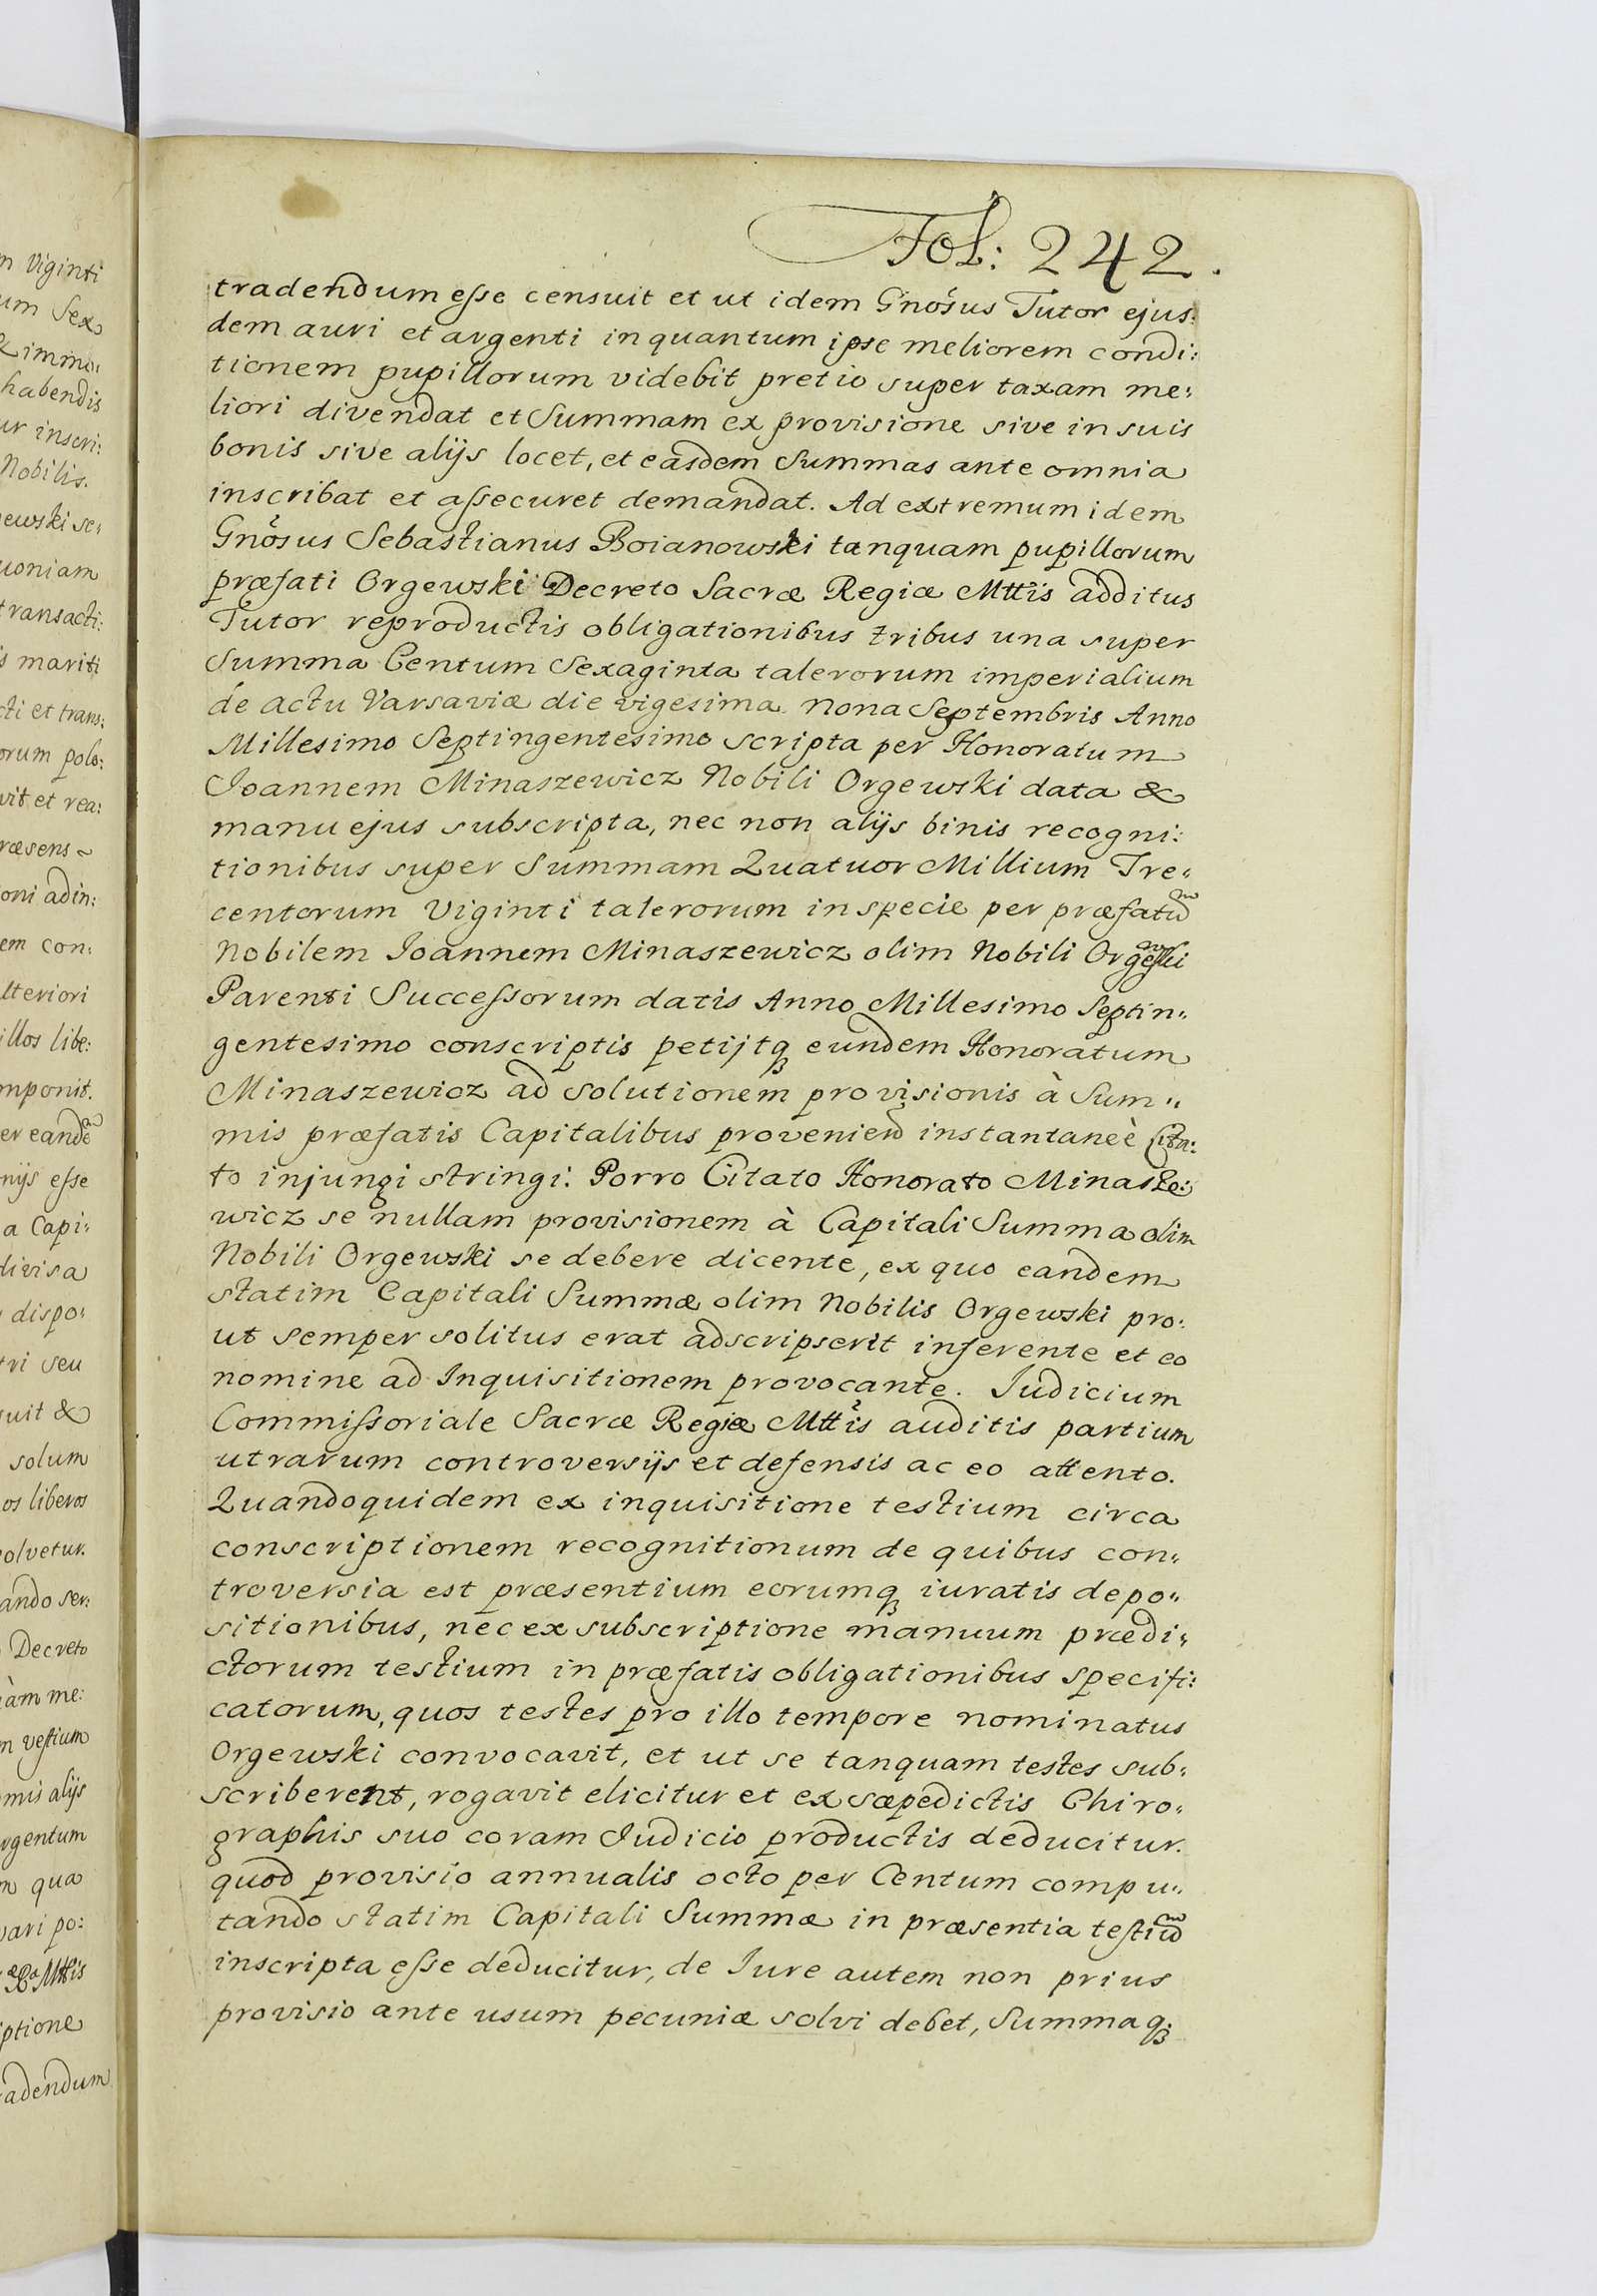 Fol: 242.
tradendum esse censuit et ut idem Gnosus Tutor ejus:
dem auri et argenti in quantum ipse meliorem condi:
tionem pupillorum videbit pretio super taxam me:
liori divendat et Summam ex provisione sive in suis
bonis sive alijs locet, et easdem Summas ante omnia
inscribat et assecuret demandat. Ad extremum idem
Gnosus Sebastianus Boianowski tanquam pupillorum
præfati Orgewski Decreto Sacræ Regiæ Mttis additus
Tutor reproductis obligationibus tribus una super
Summa Centum Sexaginta talerorum imperialium
de actu Varsaviæ die vigesima nona Septembris Anno
Millesimo Septingentesimo scripta per Honoratum
Joannem Minaszewicz Nobili Orgewski data &
manu ejus subscripta, nec non alijs binis recogni:
tionibus super Summam Quatuor Millium Tre:
centorum Viginti talerorum in specie per præfatum
Nobilem Joannem Minaszewicz olim Nobili Orgewski
Parenti Successorum datis Anno Millesimo Septin:
gentesimo conscriptis petijtq3 eundem Honoratum
Minaszewicz ad solutionem provisionis à Sum:
mis præfatis Capitalibus proveniend instantaneè Cita:
to injungi stringi. Porro Citato Honorato Minasze:
wicz se nullam provisionem à Capitali Summa olim
Nobili Orgewski se debere dicente, ex quo eandem
statim Capitali Summæ olim Nobilis Orgewski pro:
ut semper solitus erat adscripserit inferente et eo
nomine ad Inquisitionem provocante. Judicium
Commissoriale Sacræ Regiæ Mttis auditis partium
utrarum controversijs et defensis ac eo attento.
Quandoquidem ex inquisitione testium circa
conscriptionem recognitionum de quibus con:
troversia est præsentium eorumq3 iuratis depo:
sitionibus, nec ex subscriptione manuum prædi:
ctorum testium in præfatis obligationibus specifi:
catorum, quos testes pro illo tempore nominatus
Orgewski convocavit, et ut se tanquam testes sub:
scriberent, rogavit elicitur et ex sæpedictis Chiro:
graphis suo coram Judicio productis deducitur.
quod provisio annualis octo per Centum compu:
tando statim Capitali Summæ in præsentia testium
inscripta esse deducitur, de Jure autem non prius
provisio ante usum pecuniæ solvi debet, Summaq3